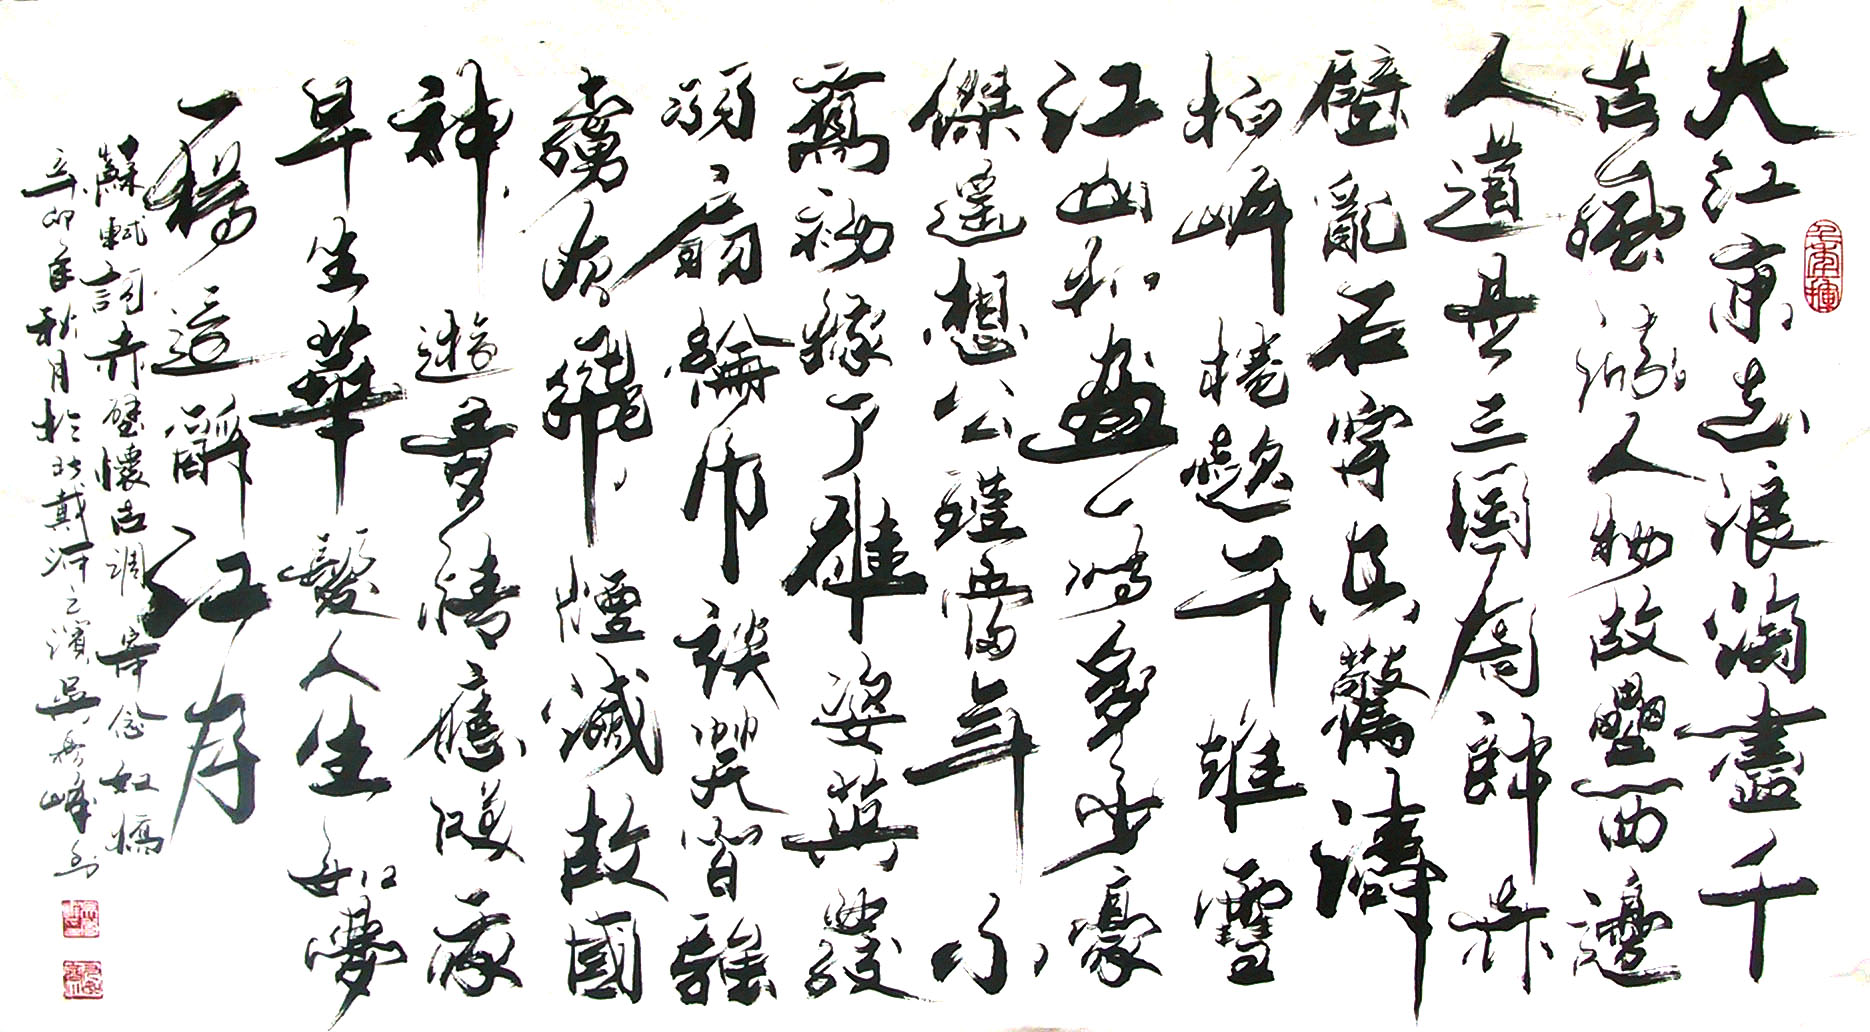 大江東去浪淘盡千
古風流人物故壘西邊
人道是三國周郎赤
壁亂石穿空驚濤
拍岸捲起千堆雪
江山如畫一時多少豪
傑遙想公瑾當年小
喬初嫁了雄姿英發
羽扇綸巾談笑間強
虜灰飛煙滅故國
神遊多情應笑我
早生華髮人生如夢
一樽還酹江月
蘇軾詞赤壁懷古調寄念奴嬌
辛卯年秋月於北戴河之濱吳峰書